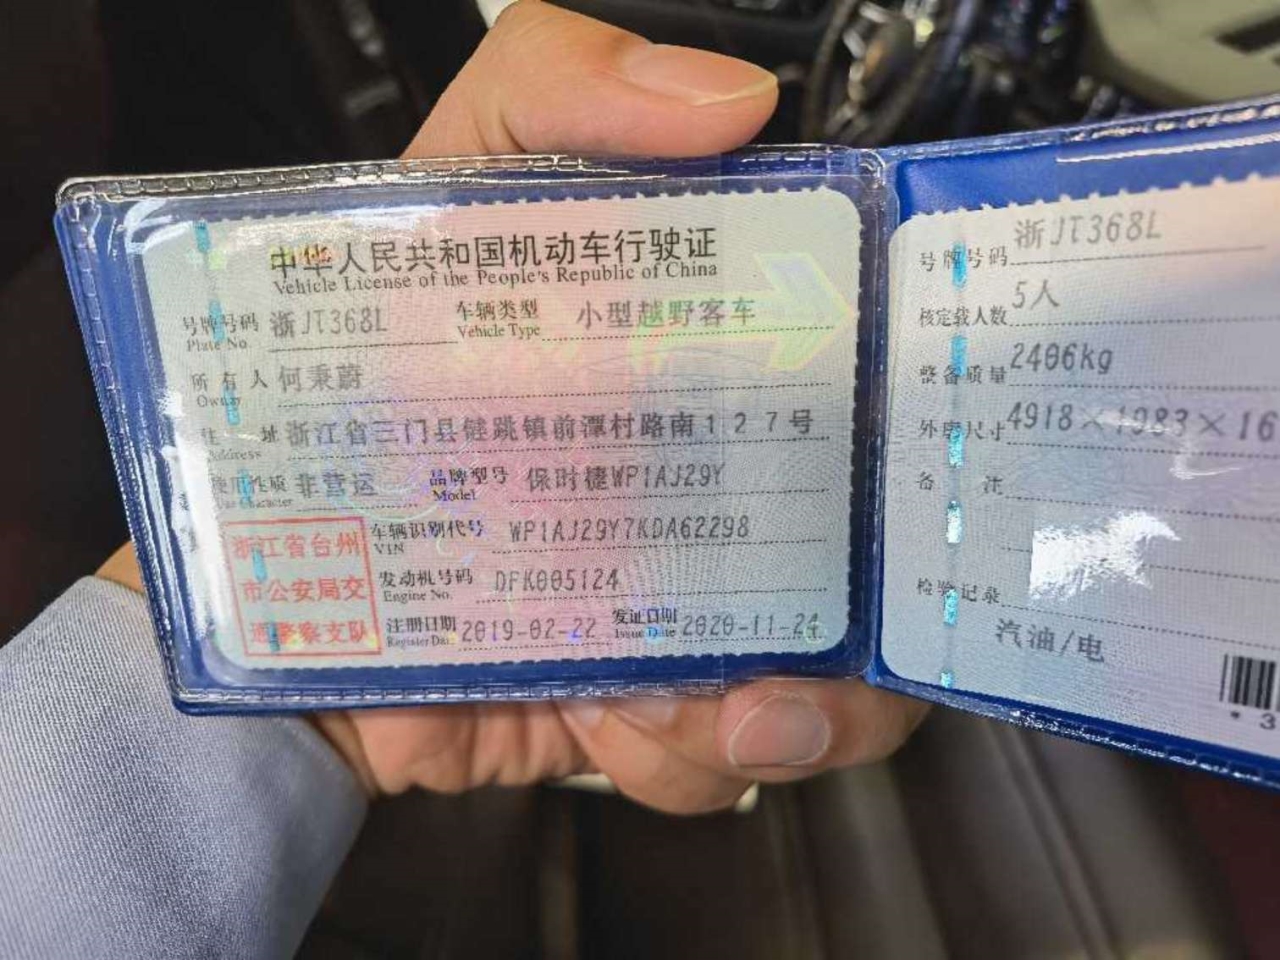 中华人民共和国机动车行驶证
Vehicle License of the People's Republic of China
号牌号码 浙JT368L 车辆类型 小型越野客车
Plate No. Vehicle Type
所有人 何秉蔚
Owner
住址 浙江省三门县健跳镇前潭村路南127号
Address
使用性质 非营运 品牌型号 保时捷WP1AJ29Y
Use Character Model
车辆识别代号 WP1AJ29Y7KDA62298
VIN
发动机号码 DFK005124
Engine No.
注册日期 2019-02-22 发证日期 2020-11-24
Register Date Issue Date
浙江省台州
市公安局交
通警察支队
号牌号码 浙JT368L
核定载人数 5人
整备质量 2406kg
外廓尺寸 4918×1983×16
备注
检验记录
汽油/电
* 3